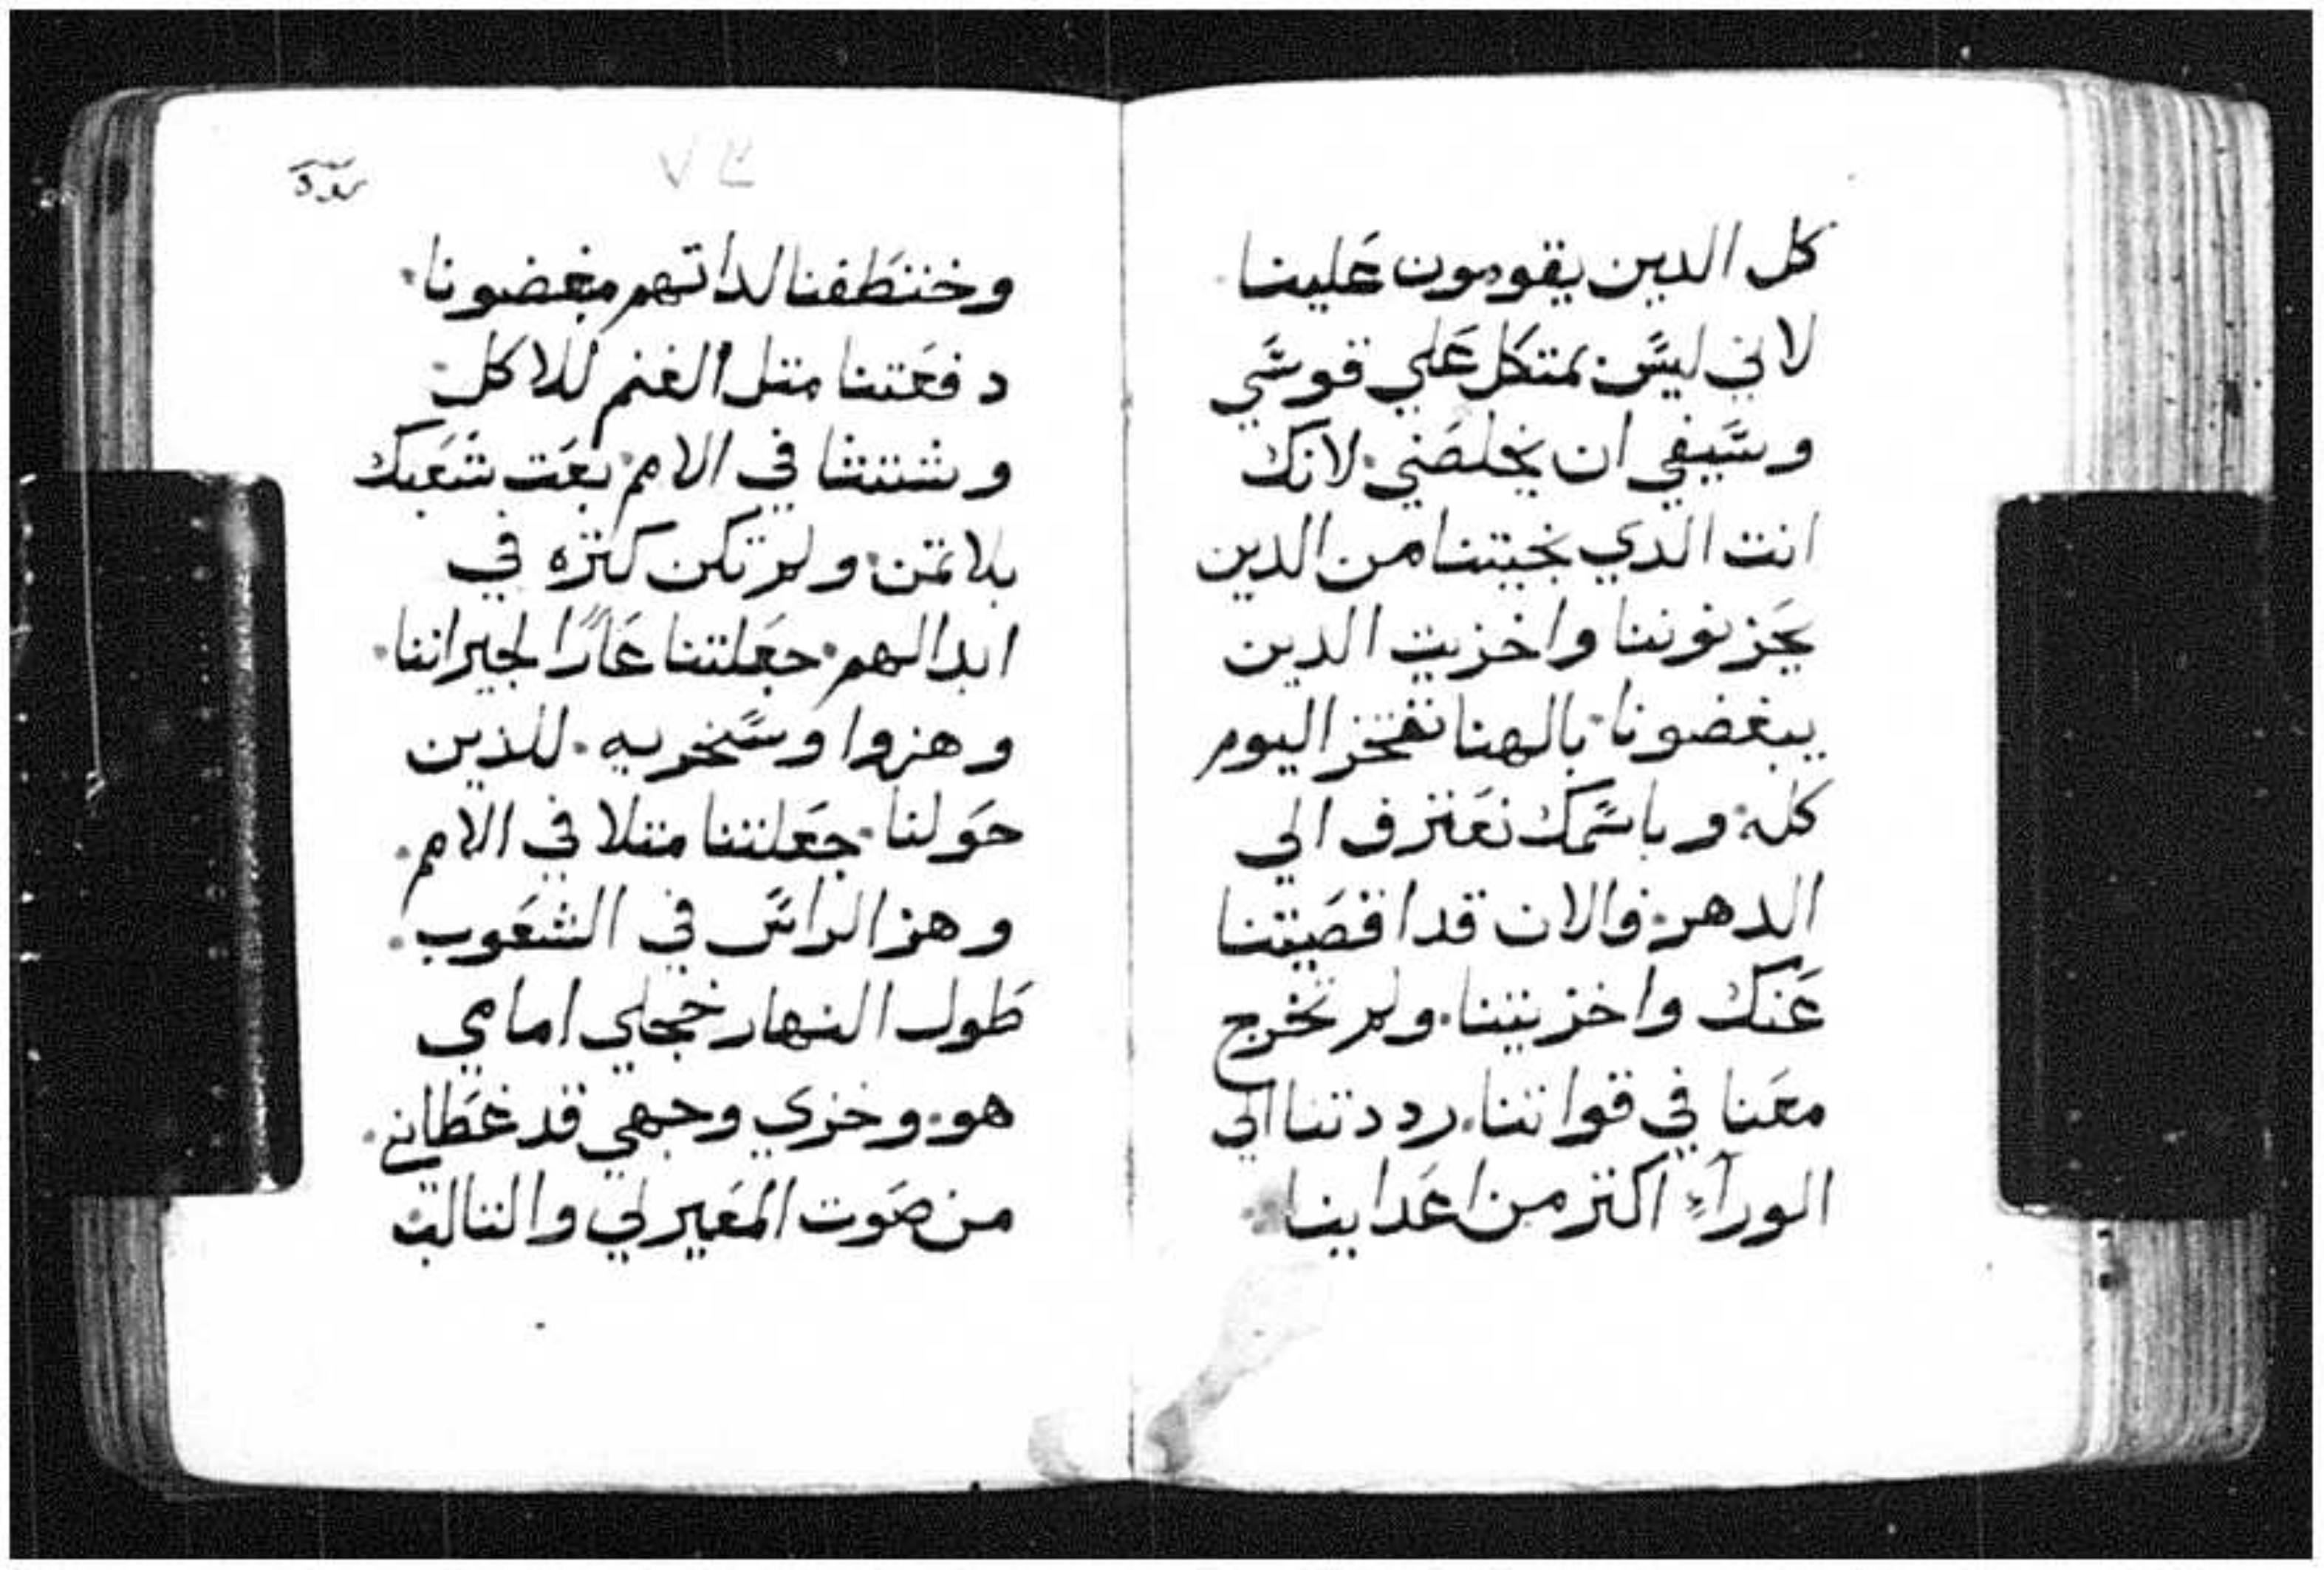 كل الدين يقومون علينا
لاني ليس بمتكل علي قوسي
وسيفي ان يخلصني لانك
انت الدي نجيتنا من الدين
يحزنوننا واخزيت الدين
يبغضونا بالهنا نفتخر اليوم
كله وباسمك نعترف الي
الدهر والان قد اقصيتنا
عنك واخزيتنا ولم تخرج
معنا في قواتنا رددتنا الي
الورآء اكتر من اعداينا
٧٤
وختطفنا لداتهم مبغضونا
دفعتنا متل الغنم للاكل
وشتتنا في الامم بعت شعبك
بلا تمن ولم تكن كتره في
ابدالهم جعلتنا عارًا لجيراننا
وهزوا وسخريه للذين
حولنا جعلتنا متلا في الامم
وهز الراس في الشعوب
طول النهار خجلي امامي
هو وخزي وجهي قد غطاني
من صوت المعير لي والتالب